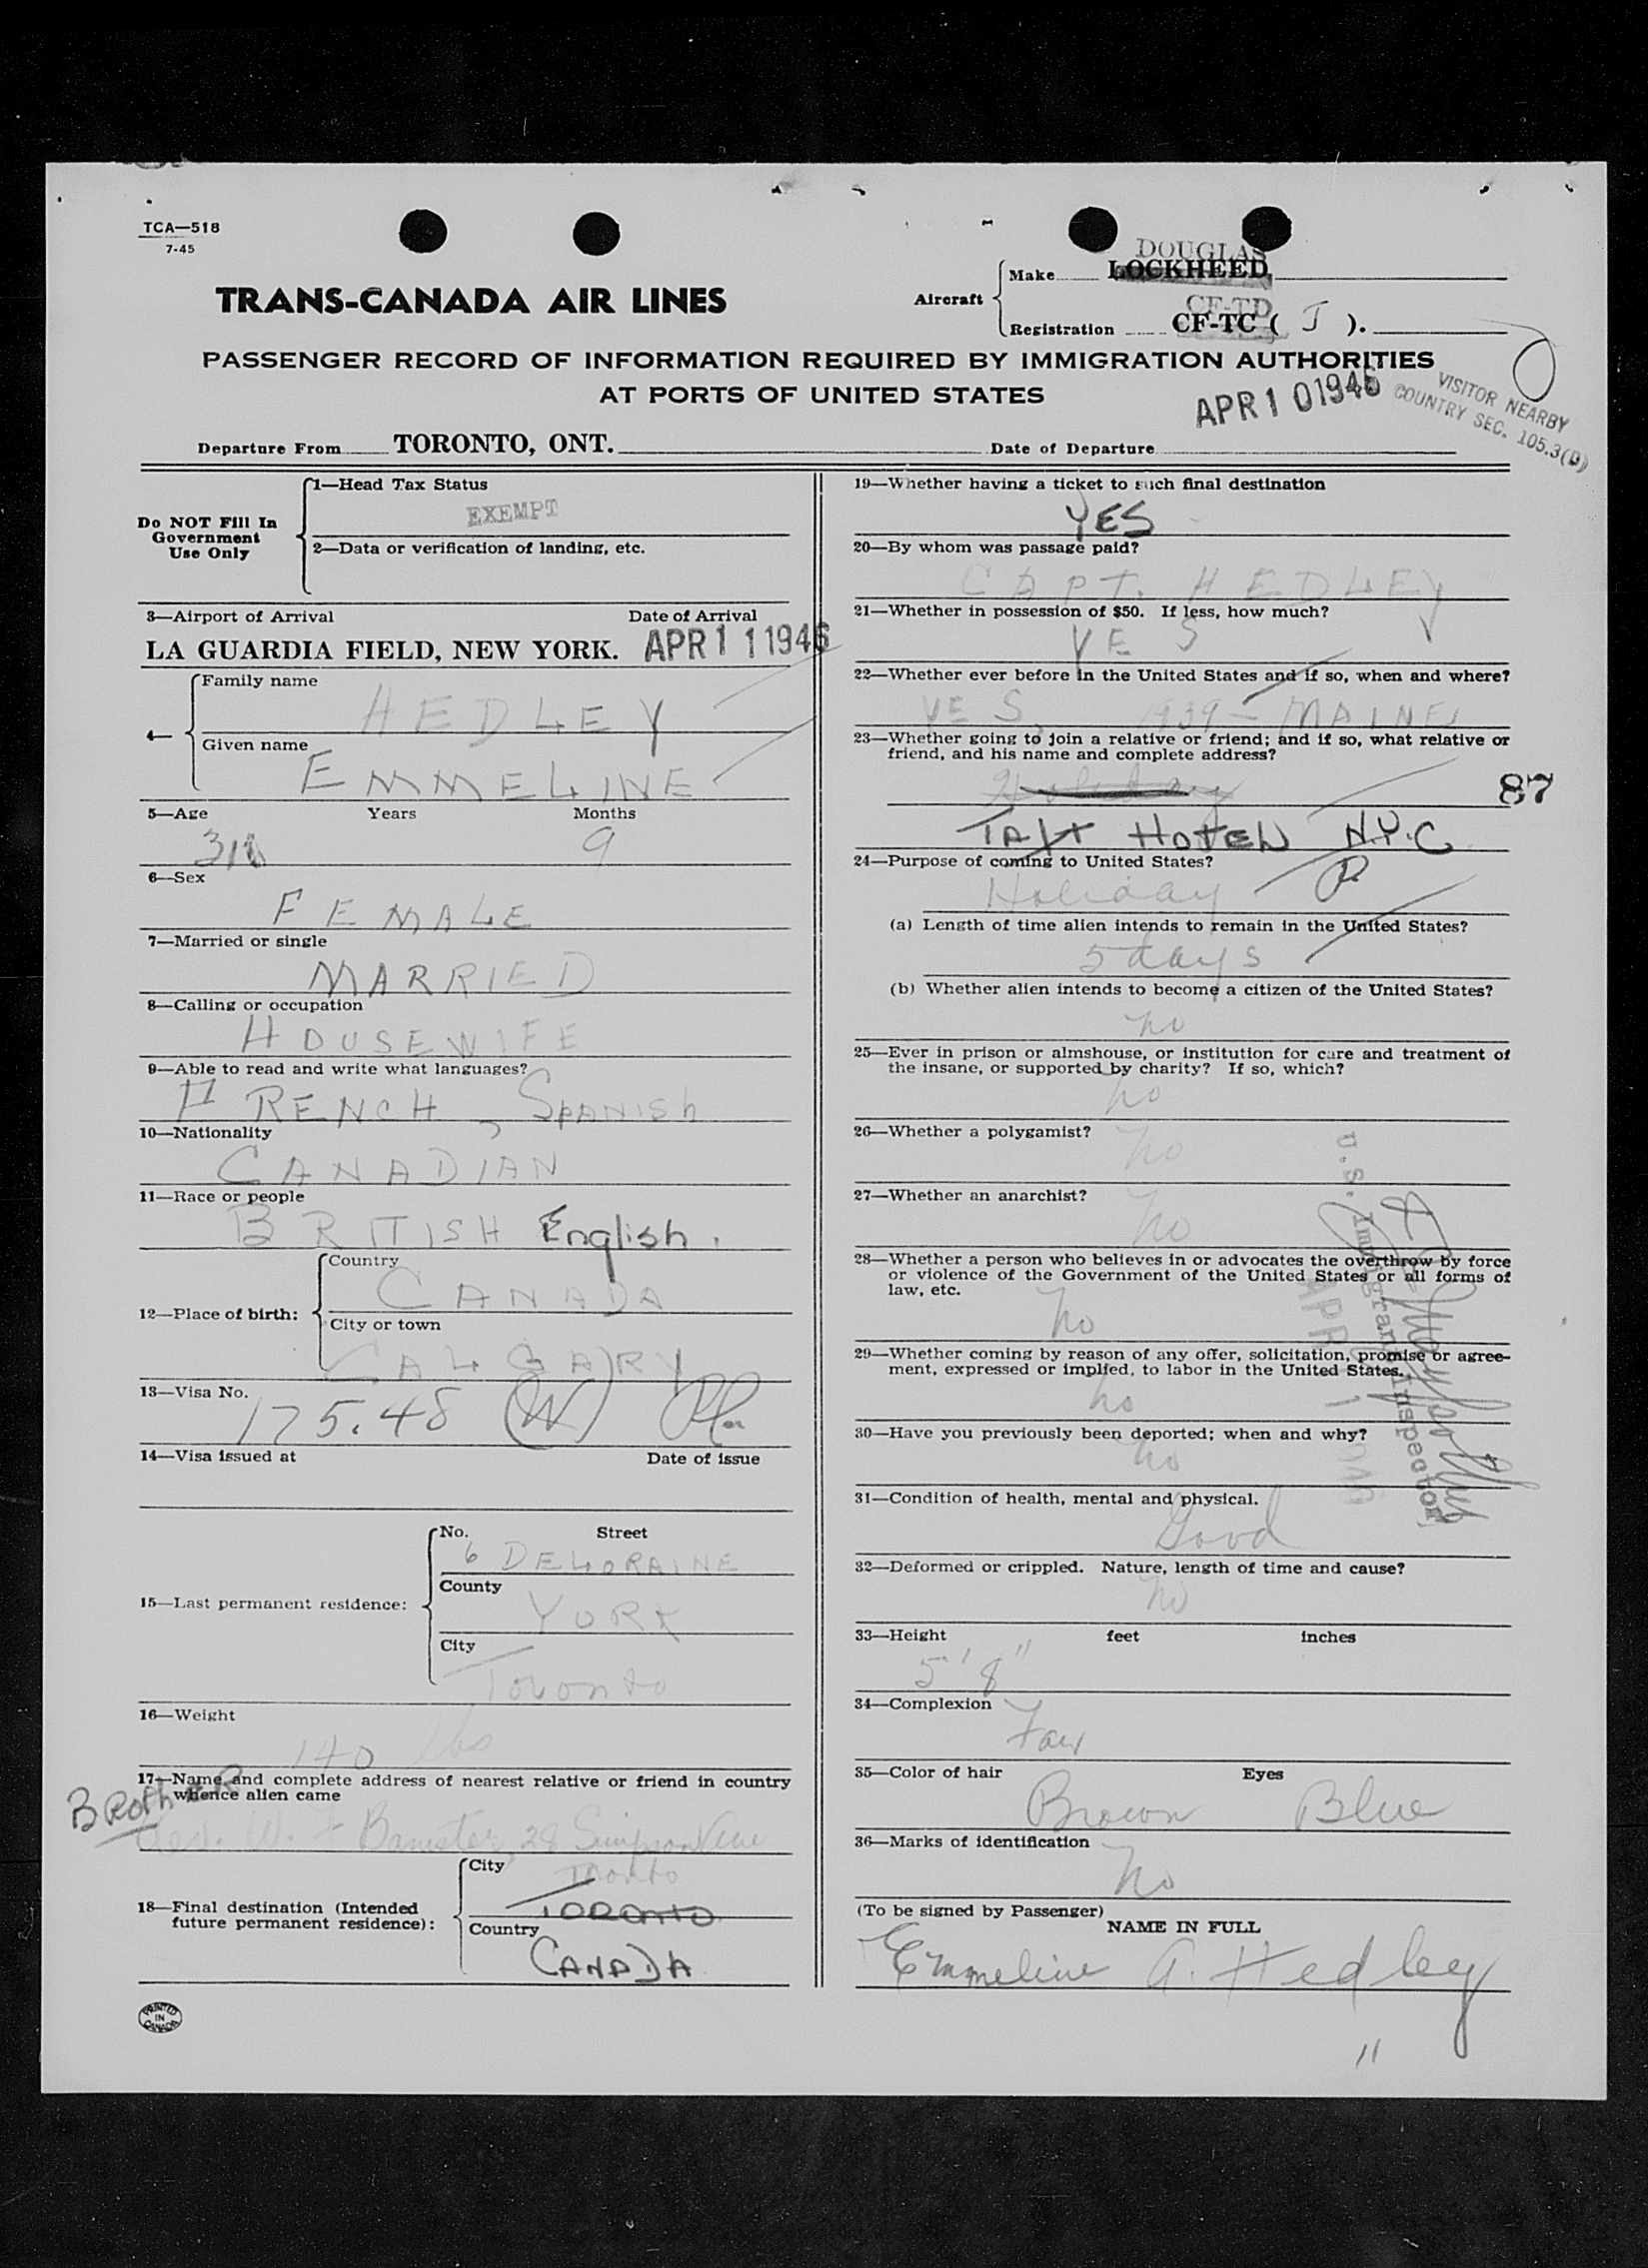 TCA—518
7-45
TRANS-CANADA AIR LINES
Aircraft
Make
DOUGLAS
LOCKHEED
Registration
CF-TD
CF-TC ( J ).
PASSENGER RECORD OF INFORMATION REQUIRED BY IMMIGRATION AUTHORITIES
AT PORTS OF UNITED STATES
APR 10 1946
VISITOR NEARBY
COUNTRY SEC. 105.3(D)
Departure From TORONTO, ONT. Date of Departure
Do NOT Fill In
Government
Use Only
1—Head Tax Status
EXEMPT
2—Data or verification of landing, etc.
3—Airport of Arrival Date of Arrival
LA GUARDIA FIELD, NEW YORK. APR 11 1946
4—
Family name
HEDLEY
Given name
EMMELINE
5—Age Years Months
31 9
6—Sex
FEMALE
7—Married or single
MARRIED
8—Calling or occupation
HOUSEWIFE
9—Able to read and write what languages?
FRENCH, SPANISh
10—Nationality
CANADIAN
11—Race or people
BRITISH English.
12—Place of birth:
Country
CANADA
City or town
CALGARY
13—Visa No.
175.48 (W)
14—Visa issued at Date of issue
15—Last permanent residence:
No. Street
6 DELORAINE
County
YORK
City
Toronto
16—Weight
140 lbs
17—Name and complete address of nearest relative or friend in country
whence alien came
BRothER
W. Banister, 28 Simpson Ave
Toronto
18—Final destination (Intended
future permanent residence):
City
TORONTO
Country
CANADA
PRINTED
IN
CANADA
19—Whether having a ticket to such final destination
YES
20—By whom was passage paid?
CAPT. HEDLEY
21—Whether in possession of $50. If less, how much?
YES
22—Whether ever before in the United States and if so, when and where?
YES, 1939 – MAINE
23—Whether going to join a relative or friend; and if so, what relative or
friend, and his name and complete address?
Holiday
87
TAFT HOTEL N.Y.C
24—Purpose of coming to United States?
Holiday P.
(a) Length of time alien intends to remain in the United States?
5 days
(b) Whether alien intends to become a citizen of the United States?
no
25—Ever in prison or almshouse, or institution for care and treatment of
the insane, or supported by charity? If so, which?
no
26—Whether a polygamist?
no
27—Whether an anarchist?
no
28—Whether a person who believes in or advocates the overthrow by force
or violence of the Government of the United States or all forms of
law, etc.
no
29—Whether coming by reason of any offer, solicitation, promise or agree-
ment, expressed or implied, to labor in the United States.
no
30—Have you previously been deported; when and why?
no
U.S. Immigrant Inspector
31—Condition of health, mental and physical.
Good
32—Deformed or crippled. Nature, length of time and cause?
no
33—Height feet inches
5' 8"
34—Complexion
Fair
35—Color of hair Eyes
Brown Blue
36—Marks of identification
no
(To be signed by Passenger)
NAME IN FULL
Emmeline A. Hedley
11